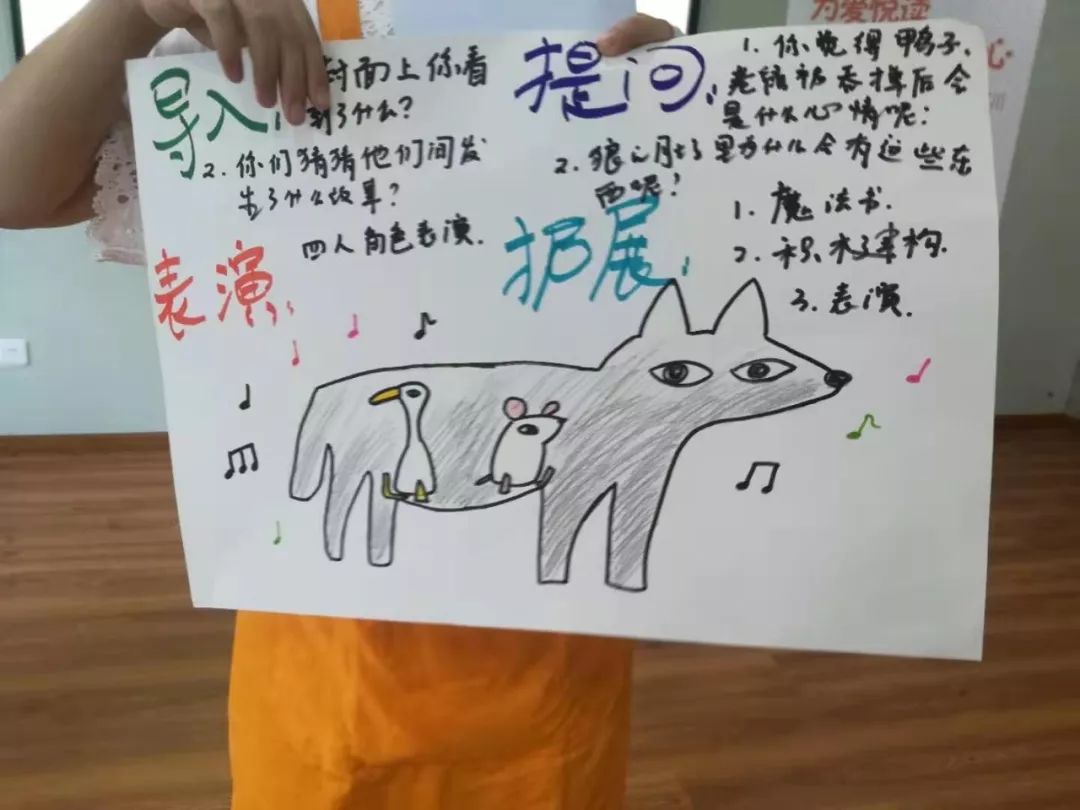 导入
1. 封面上你看
到了什么?
2. 你们猜猜他们间发
生了什么故事?
表演:
四人角色表演.
提问:
1. 你觉得鸭子、
老鼠被吞掉后会
是什么心情呢?
2. 狼的肚子里为什么会有这些东
西呢?
扩展:
1. 魔法书.
2. 积木建构.
3. 表演.
为爱悦读
心